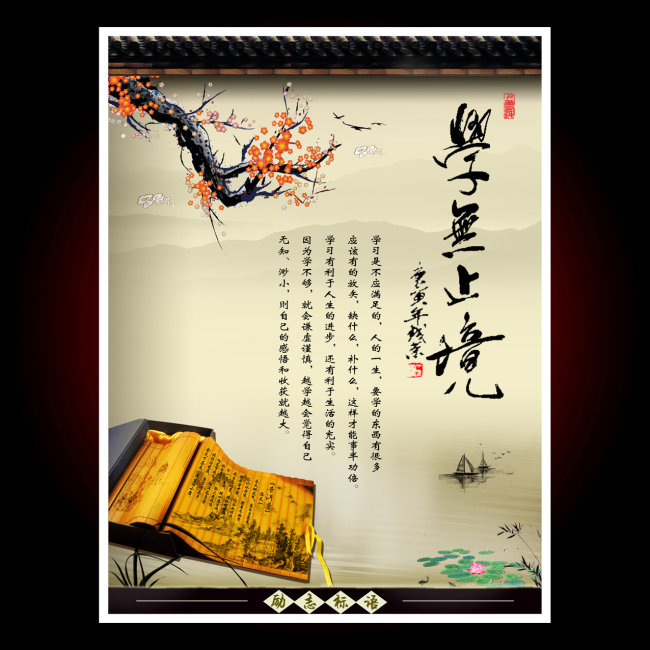 學無止境
庚寅年
学习是不应满足的，人的一生，要学的东西有很多
应该有的放矢，缺什么，补什么，这样才能事半功倍。
学习有利于人生的进步，还有利于生活的充实。
因为学不够，就会谦虚谨慎，越学越会觉得自己
无知、渺小，则自己的感悟和收获就越大。
励志标语